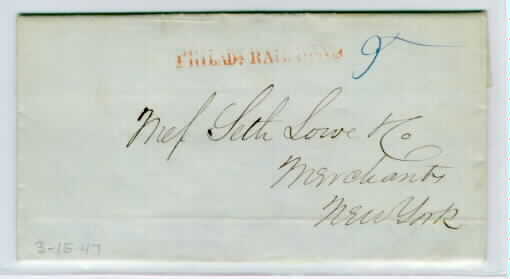 PHILADA RAILROAD
5
Mess Seth Lowe & Co
Merchants
New York
3-15-47